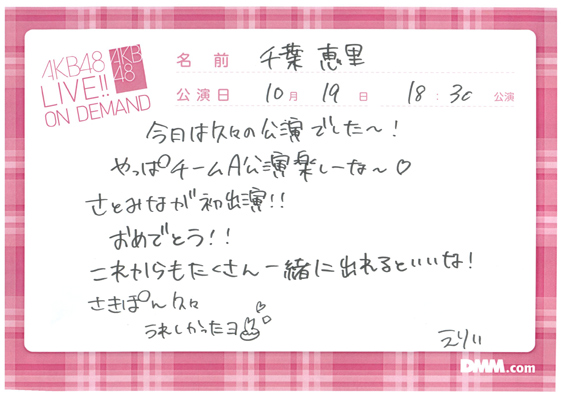 AKB48
LIVE!!
ON DEMAND
AKB
48
名前 千葉 恵里
公演日 10月 19日 18:30 公演
今日は久々の公演でした〜!
やっぱチームA公演楽しーな〜♡
さとみなが初出演!!
おめでとう!!
これからもたくさん一緒に出れるといいな!
さきぽん久々
うれしかったヨ
えりい
DMM.com